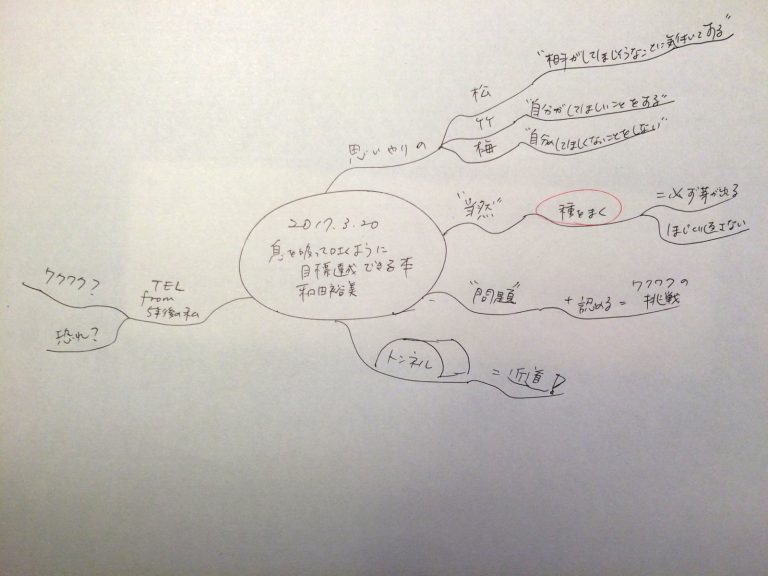 2017.3.20
息を吸って吐くように
目標達成できる本
和田裕美
思いやりの
松
"相手がしてほしそうなことに気付いてする"
竹
"自分がしてほしいことをする"
梅
"自分がしてほしくないことをしない"
"当然"
種をまく
=必ず芽が出る
ほじくり返さない
"問題"
+認める=
ワクワクの
挑戦
トンネル
=近道!
TEL
from
5年後の私
ワクワク?
恐れ?